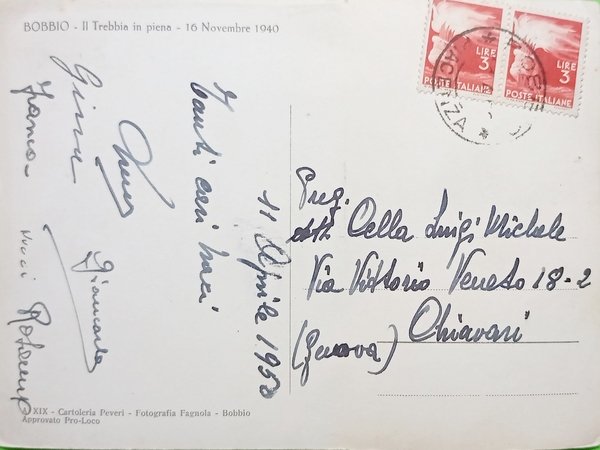 BOBBIO - Il Trebbia in piena - 16 Novembre 1940
LIRE
3
POSTE ITALIANE
LIRE
3
POSTE ITALIANE
PIACENZA
Tanti cari baci
11 Aprile 1950
Franca
Giancarla
Nucci
Preg.
Cella Luigi Michele
Via Vittorio Veneto 18-2
Chiavari
(Genova)
XIX - Cartoleria Peveri - Fotografia Fagnola - Bobbio
Approvato Pro-Loco